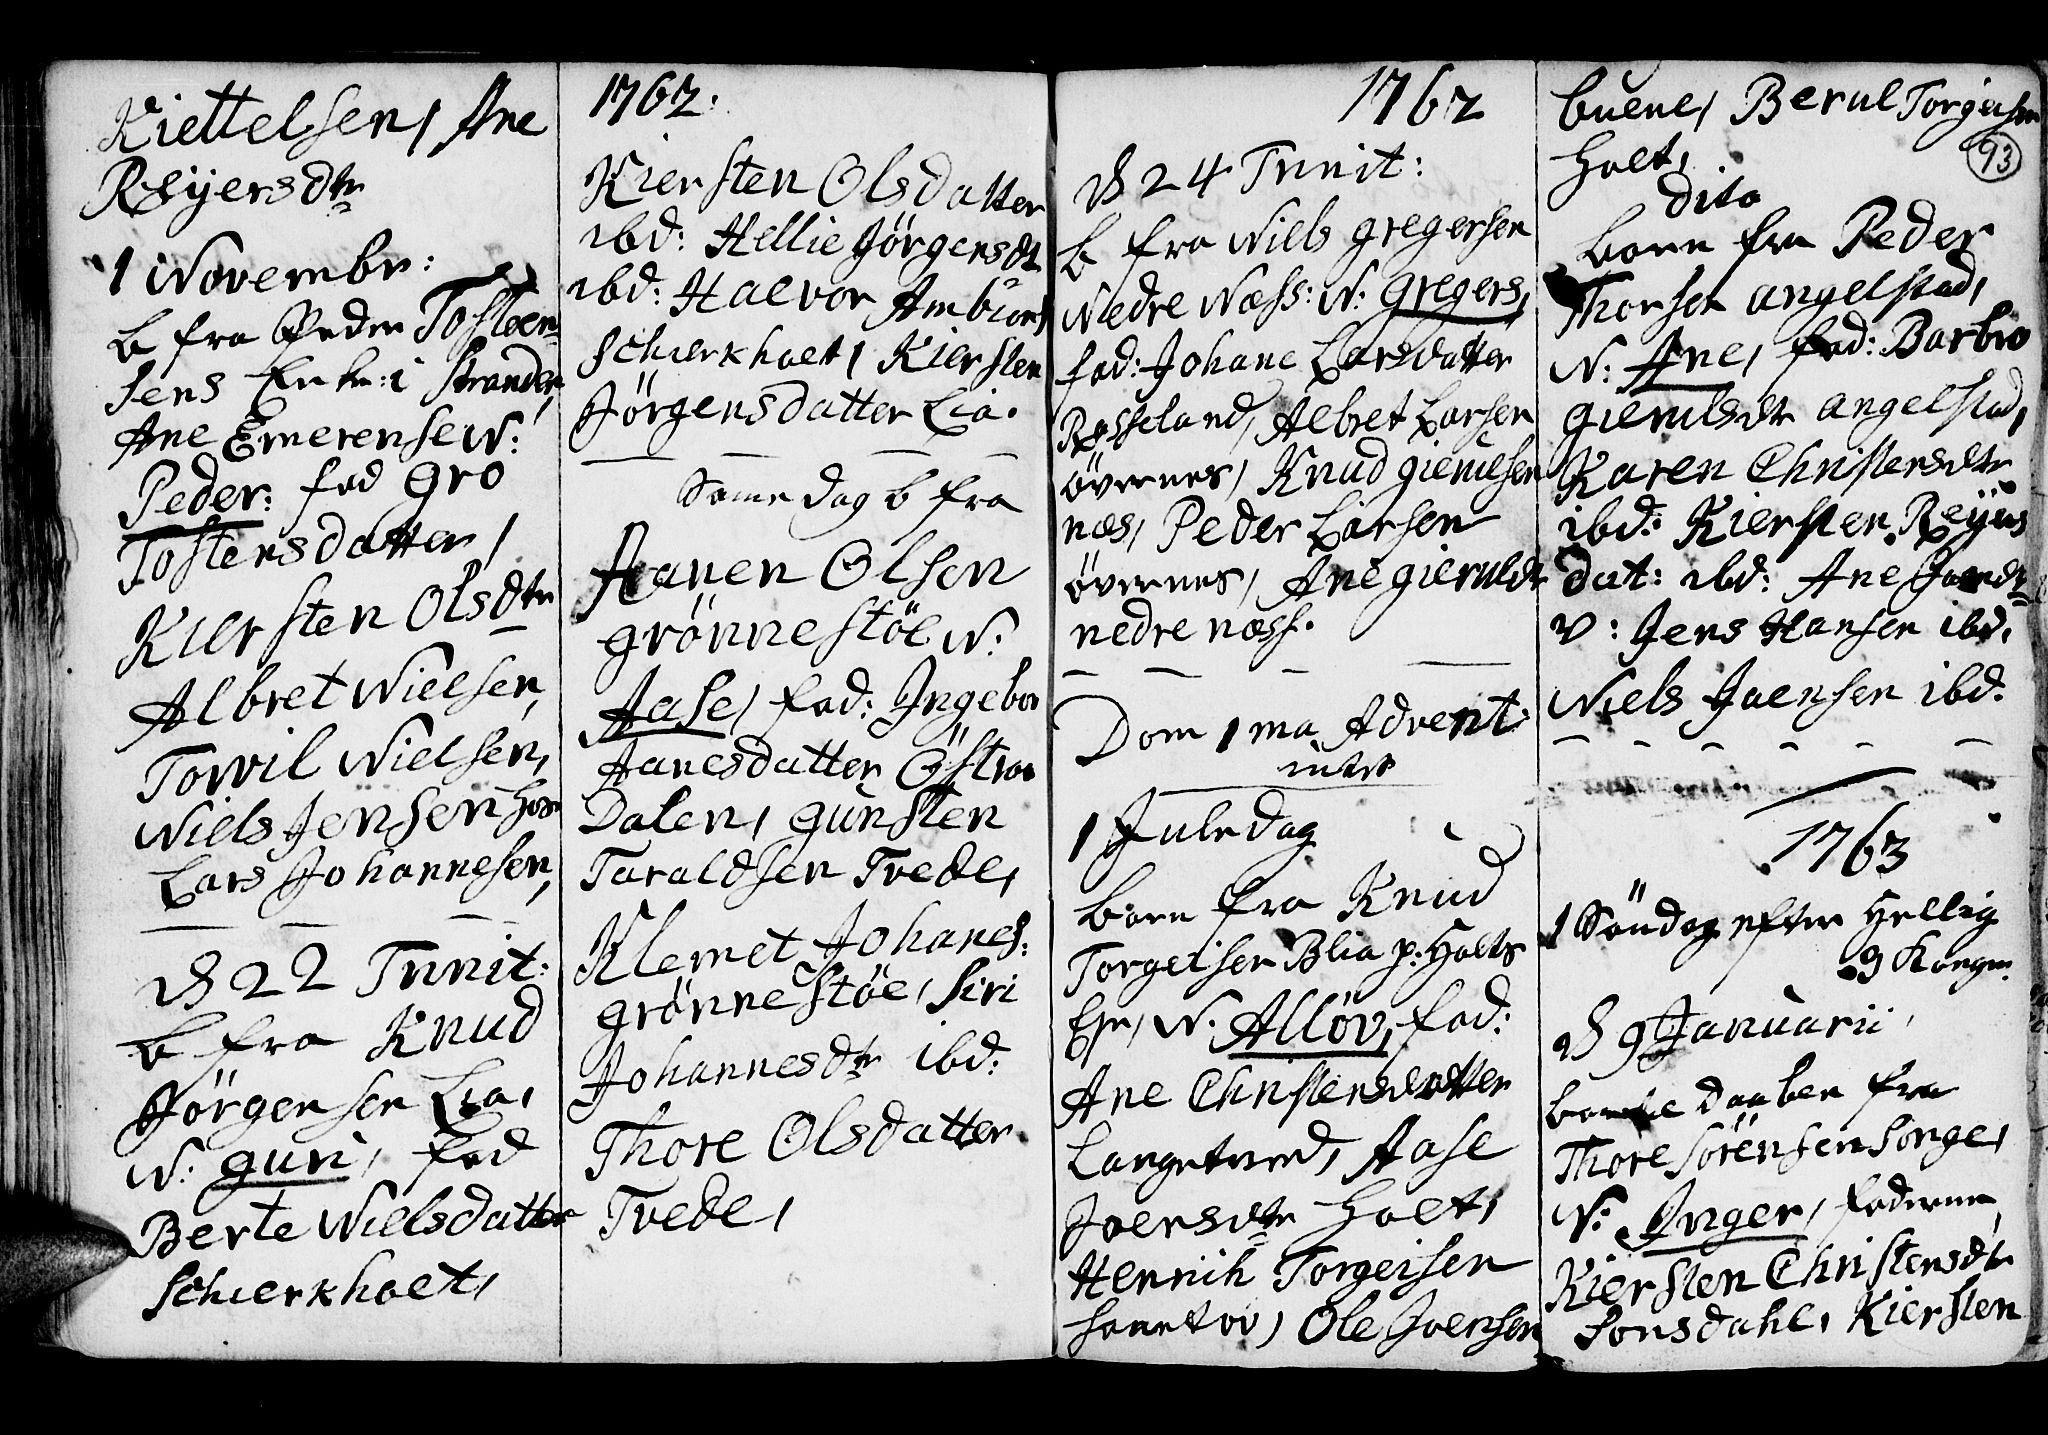 Kiettelsen, Ane
Reijersdtr
1 Novembr:
b fra Peder Tosten-
sens Enke: i Stranden,
Ane Emerense N:
Peder: fad Gro
Tostensdatter,
Kiersten Olsdtr
Albret Nielsen,
Torvil Nielsen,
Niels Jensen
Lars Johannesen,
D 22 Trinit:
b fra Knud
Jörgensen Lia,
N: guri, fad
Berte Nielsdatter
Schierkholt,
1762.
Kiersten Olsdatter
ibd: Hellie Jörgensdt
ibd: Halvor Ambiörs
Schierkholt, Kiersten
Jörgensdatter Lia.
Same dag b fra
Aanen Olsen
grönnestöl N:
Aase, fad: Ingebor
Aanesdatter Östre
Dalen, gunsten
Taraldsen Tvede,
Klemet Johanes:
grönnestöl, Siri
Johannesdtr ibd:
Thore Olsdatter
Tvede,
1762
D 24 Trinit:
b fra Niels gregersen
Nedre Næss: N: gregers,
fad: Johane Larsdatter
Rosseland, Albret Larsen
övernes, Knud gierulsen
næs, Peder Larsen
övernes, Ane gieruldtr
nedre næss.
Dom 1 ma Advent:
intet
1 Juledag
barn fra Knud
Torgeisen Blia p: Holts
Eje, N. Allöv, fad:
Ane Christensdatter
Langetved, Aase
Joensdtr Holt,
Henrik Torgeisen
Ole Joensen
buene, Berul Torgiersen
Holt,
93
dito
barn fra Peder
Thorsen angelstad,
N: Ane, fad: Barbro
gierulsdtr angelstad,
Karen Christensdtr
ibd: Kiersten Reijers
dat: ibd: Ane
V: Jens Hansen ibd.
Niels Joensen ibd.
1763
1 Söndag efter Hellig
3 Konger
D 9 Januarii,
daaben fra
Thore Sörensen Songe,
N: Inger, fadderne,
Kiersten Christensdtr
Sonsdahl, Kiersten